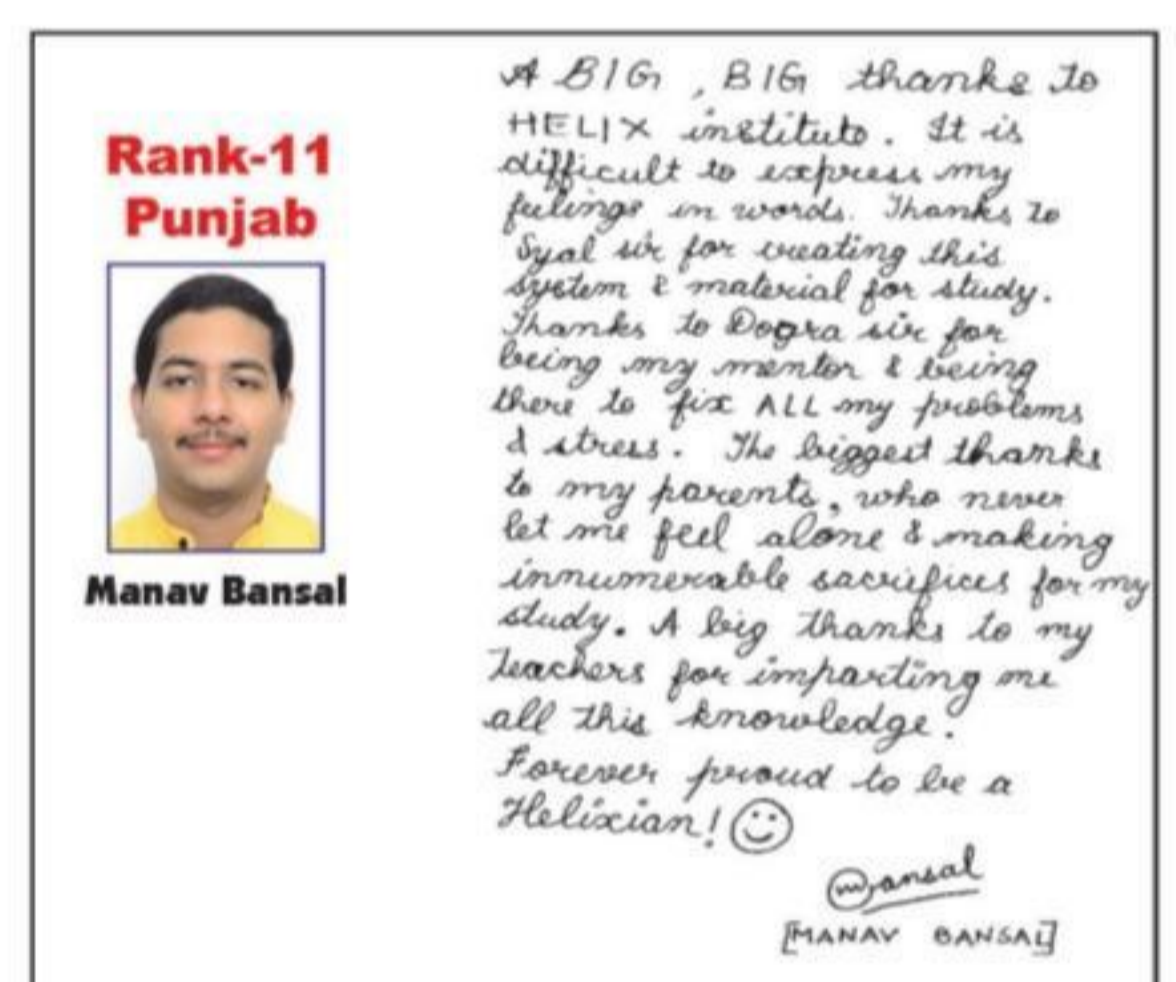 Rank-11
Punjab
Manav Bansal
A BIG, BIG thanks to
HELIX institute. It is
difficult to express my
feelings in words. Thanks to
Syal sir for creating this
system & material for study.
Thanks to Dogra sir for
being my mentor & being
there to fix ALL my problems
& stress. The biggest thanks
to my parents, who never
let me feel alone & making
innumerable sacrifices for my
study. A big thanks to my
teachers for imparting me
all this knowledge.
Forever proud to be a
Helixian!
Mansal
[MANAV BANSAL]